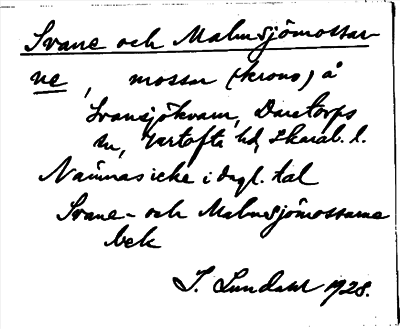 Svane och Malmsjömossar-
ne, mossar (krono) å
Svansjökvarn, Daretorps
sn, Vartofta hd, Skarab. l.
Nämnas icke i dagl. tal
Svane- och Malmsjömossarne
bek
I. Lundahl 1928.